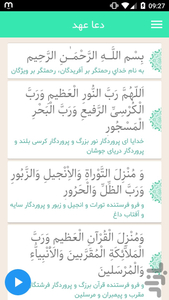 09:27
دعا عهد
بِسْمِ اللَّـهِ الرَّحْمَـٰنِ الرَّحِيمِ
به نام خدای رحمتگر بر آفریدگان، رحمتگر بر ویژگان
اَللّٰهُمَّ رَبَّ النُّورِ الْعَظِيمِ وَرَبَّ
الْكُرْسِيِّ الرَّفِيعِ وَرَبَّ الْبَحْرِ
الْمَسْجُورِ
خدایا ای پروردگار نور بزرگ و پروردگار کرسی بلند و
پروردگار دریای جوشان
وَ مُنْزِلَ التَّوْرَاةِ وَالْاِنْجِيلِ وَالزَّبُورِ
وَرَبَّ الظِّلِّ وَالْحَرُورِ
و فرو فرستنده تورات و انجیل و زبور و پروردگار سایه
و آفتاب داغ
وَمُنْزِلَ الْقُرْآنِ الْعَظِيمِ وَرَبَّ
الْمَلَائِكَةِ الْمُقَرَّبِينَ وَالْاَنْبِيَاءِ
وَالْمُرْسَلِينَ
و فرو فرستنده قرآن بزرگ و پروردگار فرشتگان
مقرب و پیمبران و مرسلین